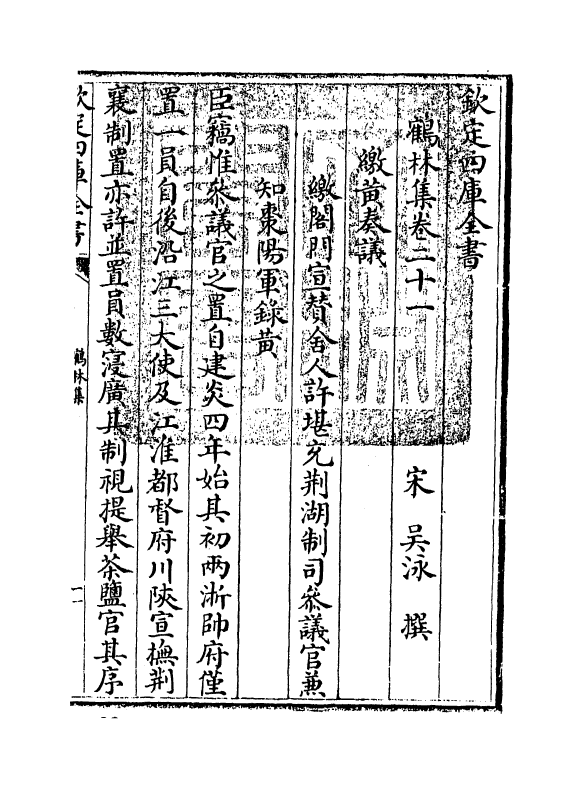 欽定四庫全書
鶴林集卷二十一
宋 吳泳 撰
繳黃奏議
繳閤門宣贊舍人許堪充荆湖制司叅議官兼
知棗陽軍錄黃
臣竊惟叅議官之置自建炎四年始其初兩浙帥府僅
置一員自後沿江三大使及江淮都督府川陝宣撫荆
襄制置亦許並置員數寖廣其制視提舉茶鹽官其序
欽定四庫全書
鶴林集
一